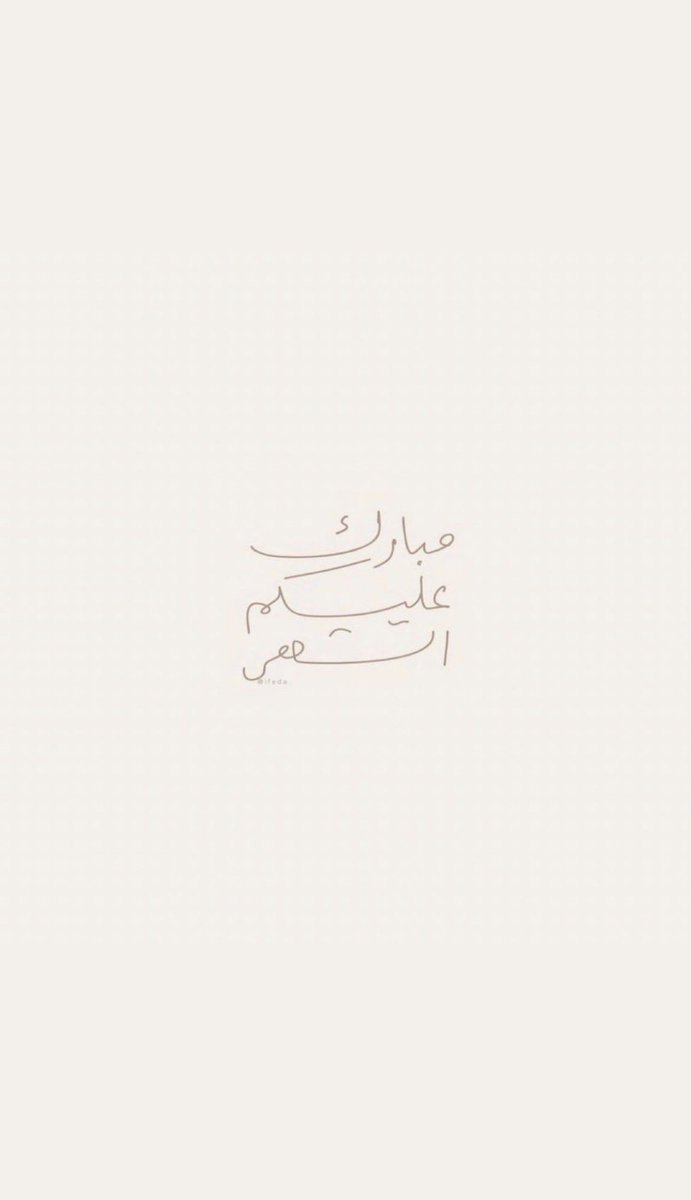 مبارك
عليكم
الشهر
@ifeda.